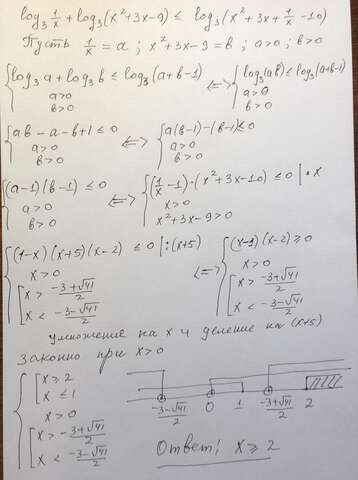 log₃ 1/x + log₃(x²+3x-9) ≤ log₃(x²+3x+1/x-10)
Пусть 1/x = a ; x²+3x-9 = b ; a>0 ; b>0
{ log₃a + log₃b ≤ log₃(a+b-1) <=> { log₃(ab) ≤ log₃(a+b-1)
a>0 a>0
b>0 b>0
{ ab-a-b+1 ≤ 0 <=> { a(b-1)-(b-1) ≤ 0
a>0 a>0
b>0 b>0
{ (a-1)(b-1) ≤ 0 <=> { (1/x-1)·(x²+3x-10) ≤ 0 |·x
a>0 x>0
b>0 x²+3x-9>0
{ (1-x)(x+5)(x-2) ≤ 0 |:(x+5) <=> { (x-1)(x-2) ≥ 0
x>0 x>0
[ x > (-3+√41)/2 [ x > (-3+√41)/2
x < (-3-√41)/2 x < (-3-√41)/2
умножение на x и деление на (x+5)
законно при x>0
{ [ x ≥ 2
x ≤ 1
x>0
[ x > (-3+√41)/2
x < (-3-√41)/2
(-3-√41)/2 0 1 (-3+√41)/2 2
Ответ: x ≥ 2